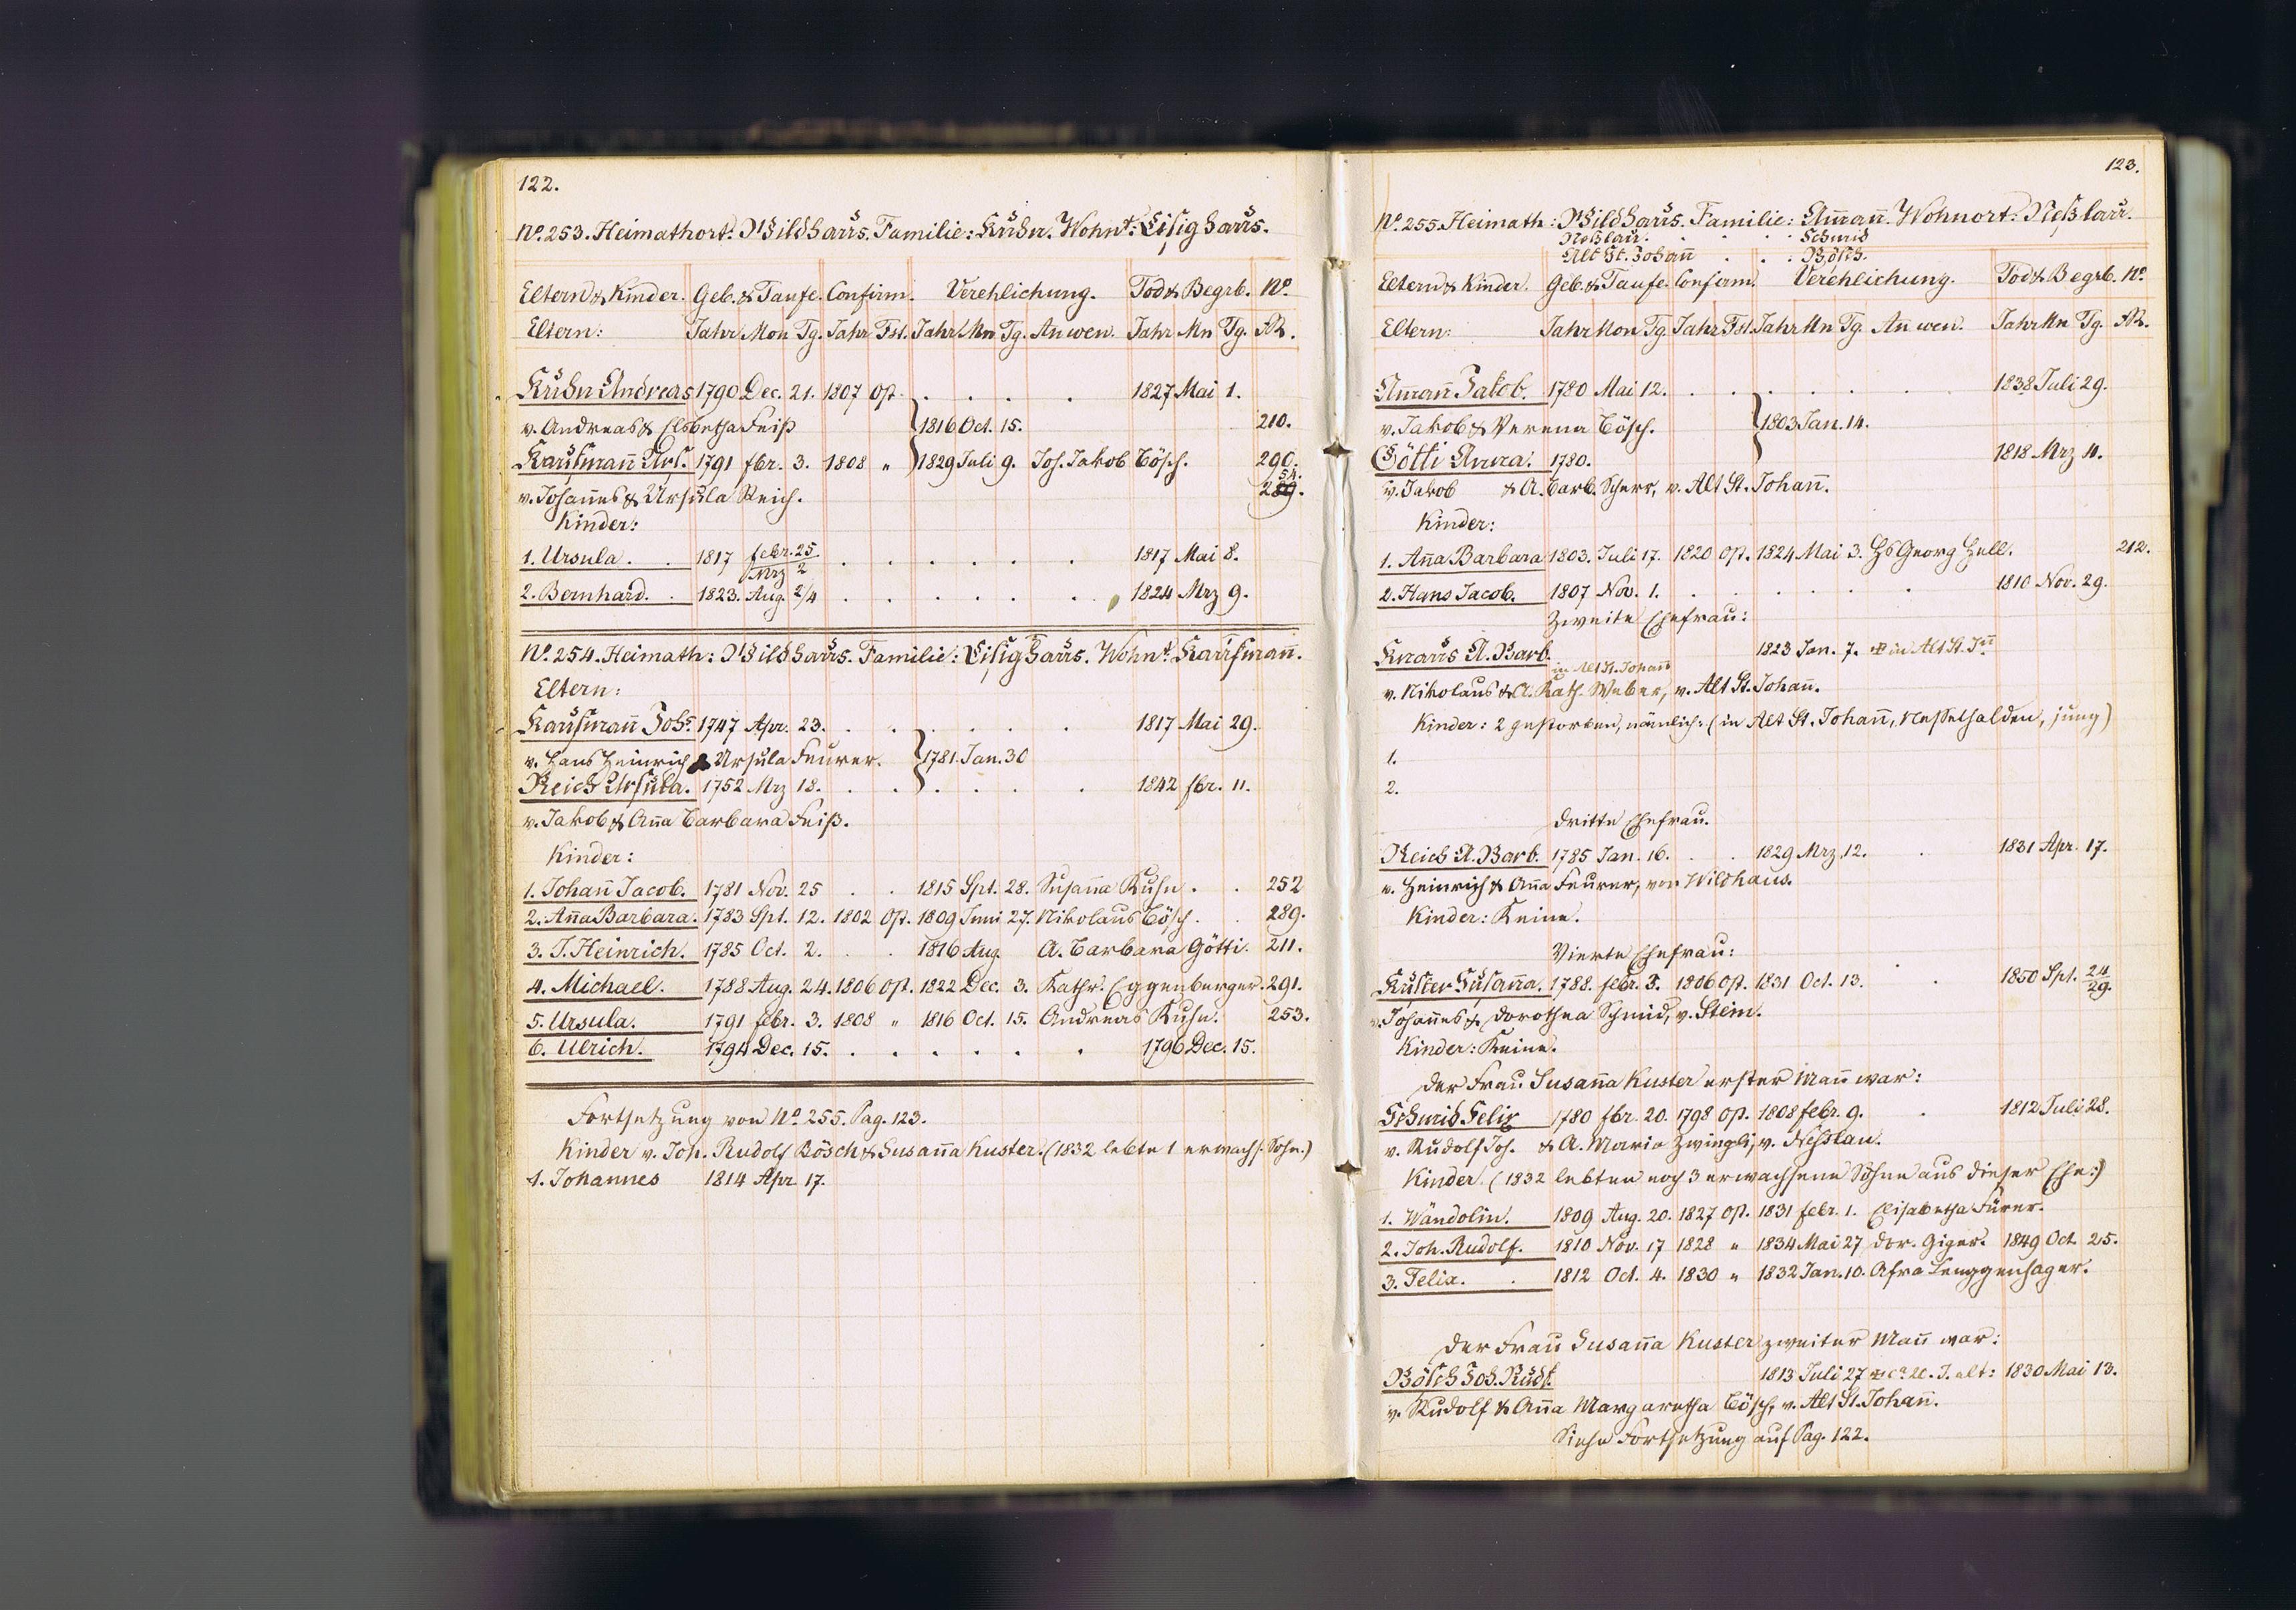 122.
No. 253. Heimathort: Wildhaus. Familie: Kuhn. Wohnt: Lisighaus.
Eltern & Kinder. Geb. & Taufe. Confirm. Verehlichung. Tod & Begrb. No.
Eltern: Jahr Mon Tg. Jahr Fst. Jahr Mn Tg. An wen. Jahr Mn Tg. A2.
Kuhn Andreas 1790 Dec. 21. 1807 Op. 1827 Mai 1.
v. Andreas & Elsbetha Feiß 1816 Oct. 15. 210.
Kaufmann Urs. 1791 fbr. 3. 1808 " 1829 Juli 9. Joh. Jakob Bösch. 290.
v. Johannes & Ursula Reich. 54.
Kinder:
1. Ursula. 1817 febr. 25. / Mrz 2 1817 Mai 8.
2. Bernhard. 1823. Aug. 2/4 1824 Mrz 9.
No. 254. Heimath: Wildhaus. Familie: Lisighaus. Wohnt. Kaufmann.
Eltern:
Kaufmann Johs. 1747 Apr. 23. 1817 Mai 29.
v. Hans Heinrich & Ursula Feurer. 1781 Jan. 30
Reich Ursula. 1752 Mrz 18. 1842 fbr. 11.
v. Jakob & Anna Barbara Feiß.
Kinder:
1. Johann Jacob. 1781 Nov. 25 1815 Spt. 28. Susanna Kuhn. 252
2. Anna Barbara. 1783 Spt. 12. 1802 Op. 1809 Juni 27. Nikolaus Bösch. 289.
3. J. Heinrich. 1785 Oct. 2. 1816 Aug. A. Barbara Götti. 211.
4. Michael. 1788 Aug. 24. 1806 Op. 1822 Dec. 3. Kathr. Eggenberger. 291.
5. Ursula. 1791 febr. 3. 1808 " 1816 Oct. 15. Andreas Kuhn. 253.
6. Ulrich. 1794 Dec. 15. 1796 Dec. 15.
Fortsetzung von No. 255. Pag. 123.
Kinder v. Joh. Rudolf Bösch & Susanna Kuster. (1832 lebte 1 erwachs. Sohn.)
1. Johannes 1814 Apr. 17.
123.
No. 255. Heimath: Wildhaus. Familie: Amann. Wohnort: Neßlau.
Neßlau. Schmid
Alt St. Johann Bösch.
Eltern & Kinder. Geb. & Taufe. Confirm. Verehlichung. Tod & Begrb. No.
Eltern: Jahr Mon Tg. Jahr Fst. Jahr Mn Tg. An wen. Jahr Mn Tg. A2.
Amann Jakob. 1780 Mai 12. 1838 Juli 29.
v. Jakob & Verena Bösch. 1803 Jan. 14.
Götti Anna. 1780. 1818 Mrz 11.
v. Jakob & A. Barb. Scherr, v. Alt St. Johann.
Kinder:
1. Anna Barbara 1803. Juli 17. 1820 Op. 1824 Mai 3. Hs Georg Hell. 212.
2. Hans Jacob. 1807 Nov. 1. 1810 Nov. 29.
Zweite Ehefrau:
Knaus A. Barb. 1823 Jan. 7. in Alt St. Jnn
in Alt St. Johann
v. Nikolaus & A. Kath. Weber, v. Alt St. Johann.
Kinder: 2 gestorben, nämlich: (in Alt St. Johann, Nesselhalden, jung)
1.
2.
Dritte Ehefrau.
Reich A. Barb. 1785 Jan. 16. 1829 Mrz. 12. 1831 Apr. 17.
v. Heinrich & Anna Feurer, von Wildhaus.
Kinder: Keine.
Vierte Ehefrau:
Kuster Susanna. 1788. febr. 3. 1806 Op. 1831 Oct. 13. 1850 Spt. 24/29.
v. Johannes & Dorothea Schmid, v. Stein.
Kinder: Keine.
Der Frau Susanna Kuster erster Mann war:
Schmid Felix 1780 fbr. 20. 1798 Op. 1808 febr. 9. 1812 Juli 28.
v. Rudolf Joh. & A. Maria Zwingli, v. Nesslau.
Kinder (1832 lebten noch 3 erwachsene Söhne aus dieser Ehe:)
1. Wändolin. 1809 Aug. 20. 1827 Op. 1831 febr. 1. Elisabetha Fürer.
2. Joh. Rudolf. 1810 Nov. 17 1828 " 1834 Mai 27 Dor. Giger. 1849 Oct. 25.
3. Felix. 1812 Oct. 4. 1830 " 1832 Jan. 10. Afra Lenggenhager.
Der Frau Susanna Kuster zweiter Mann war:
Bösch Joh. Rud. 1813 Juli 27 J. alt: 1830 Mai 13.
v. Rudolf & Anna Margaretha Bösch, v. Alt St. Johann.
Siehe Fortsetzung auf Pag. 122.